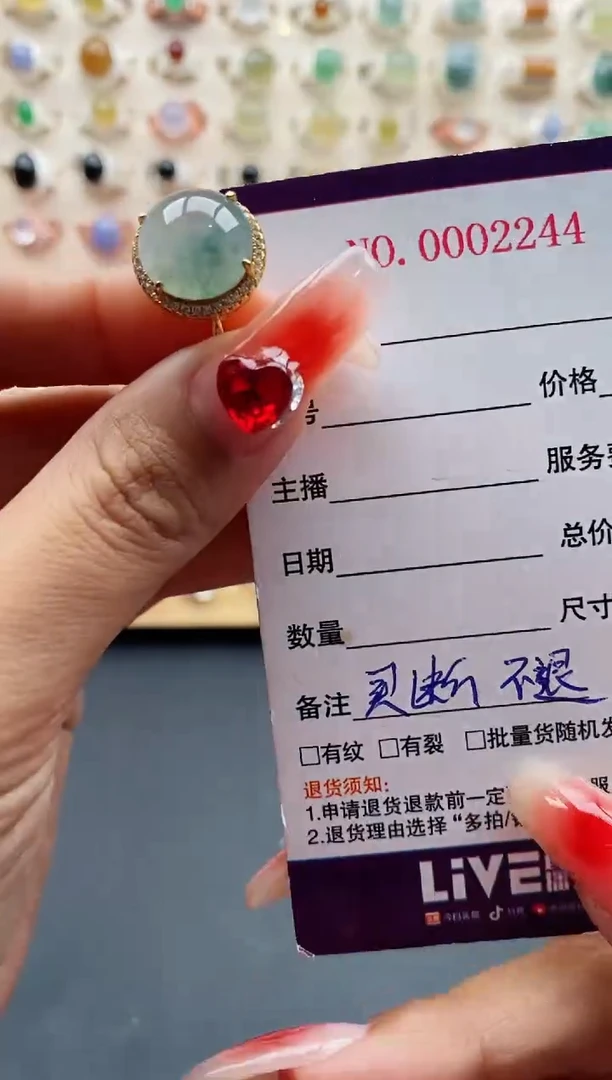 NO. 0002244
号
价格
主播
服务
日期
总价
数量
尺寸
备注 买断 不退
□有纹 □有裂 □批量货随机发
退货须知:
1.申请退货退款前一定
服
2.退货理由选择“多拍/
LiVE
今日头条